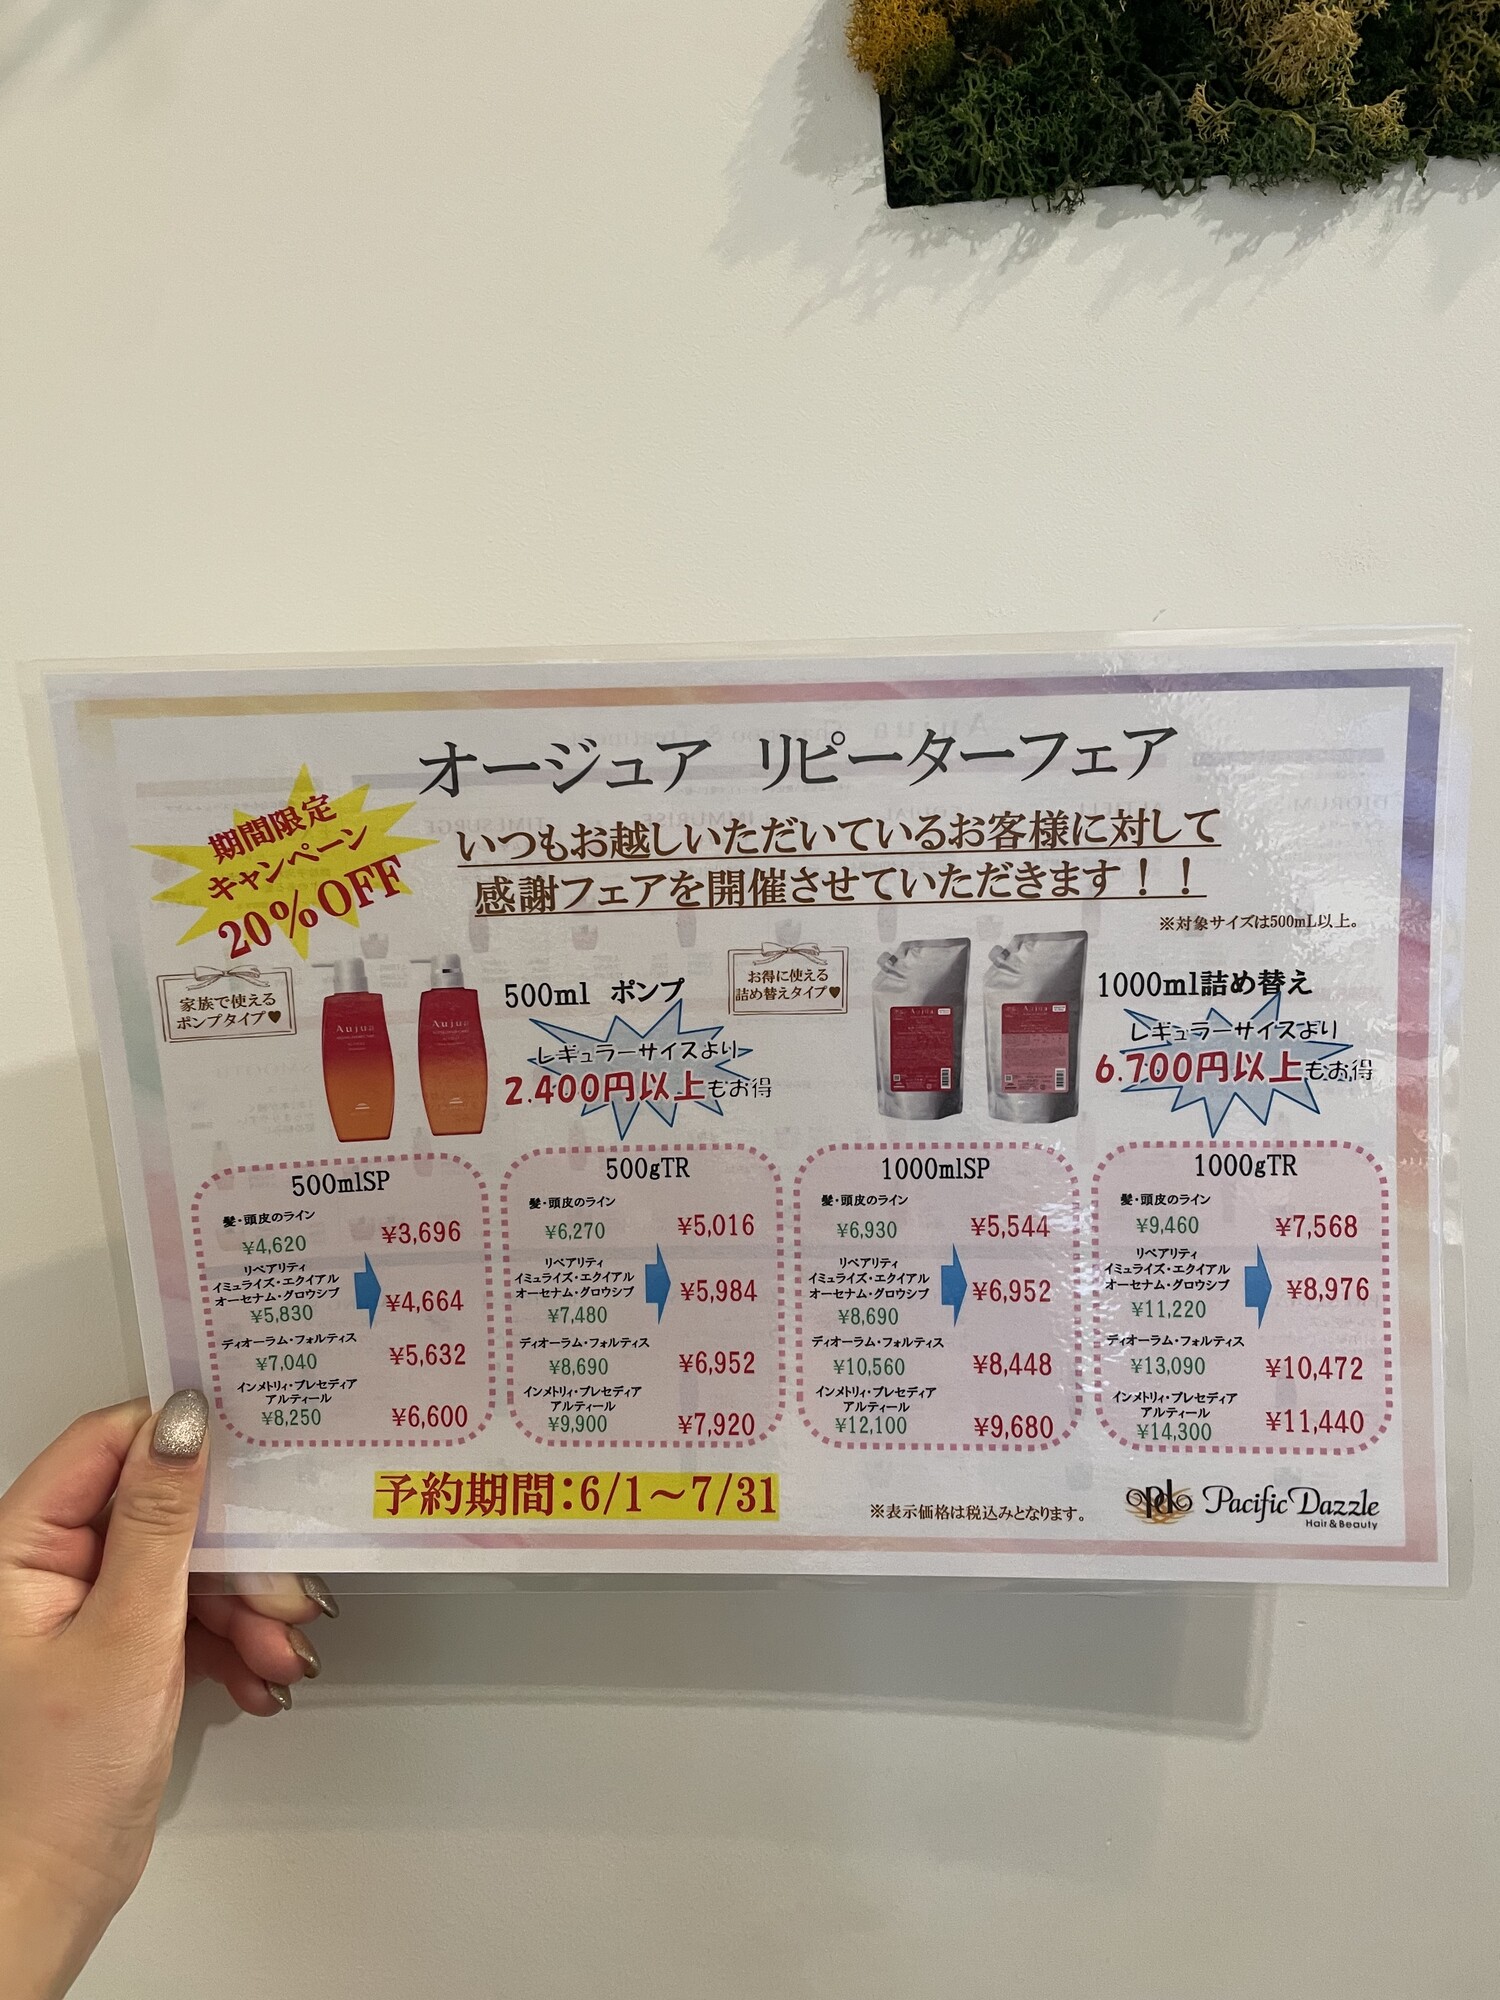 オージュア リピーターフェア
期間限定
キャンペーン
20%OFF
いつもお越しいただいているお客様に対して
感謝フェアを開催させていただきます！！
※対象サイズは500mL以上。
家族で使える
ポンプタイプ♥
Aujua
Aujua
500ml ポンプ
レギュラーサイズより
2.400円以上もお得
お得に使える
詰め替えタイプ♥
Aujua
Aujua
1000ml詰め替え
レギュラーサイズより
6.700円以上もお得
500mlSP
髪・頭皮のライン
¥4,620
¥3,696
リペアリティ
イミュライズ・エクイアル
オーセナム・グロウシブ
¥5,830
¥4,664
ディオーラム・フォルティス
¥7,040
¥5,632
インメトリィ・プレセディア
アルティール
¥8,250
¥6,600
500gTR
髪・頭皮のライン
¥6,270
¥5,016
リペアリティ
イミュライズ・エクイアル
オーセナム・グロウシブ
¥7,480
¥5,984
ディオーラム・フォルティス
¥8,690
¥6,952
インメトリィ・プレセディア
アルティール
¥9,900
¥7,920
1000mlSP
髪・頭皮のライン
¥6,930
¥5,544
リペアリティ
イミュライズ・エクイアル
オーセナム・グロウシブ
¥8,690
¥6,952
ディオーラム・フォルティス
¥10,560
¥8,448
インメトリィ・プレセディア
アルティール
¥12,100
¥9,680
1000gTR
髪・頭皮のライン
¥9,460
¥7,568
リペアリティ
イミュライズ・エクイアル
オーセナム・グロウシブ
¥11,220
¥8,976
ディオーラム・フォルティス
¥13,090
¥10,472
インメトリィ・プレセディア
アルティール
¥14,300
¥11,440
予約期間：6/1～7/31
※表示価格は税込みとなります。
pd Pacific Dazzle
Hair & Beauty